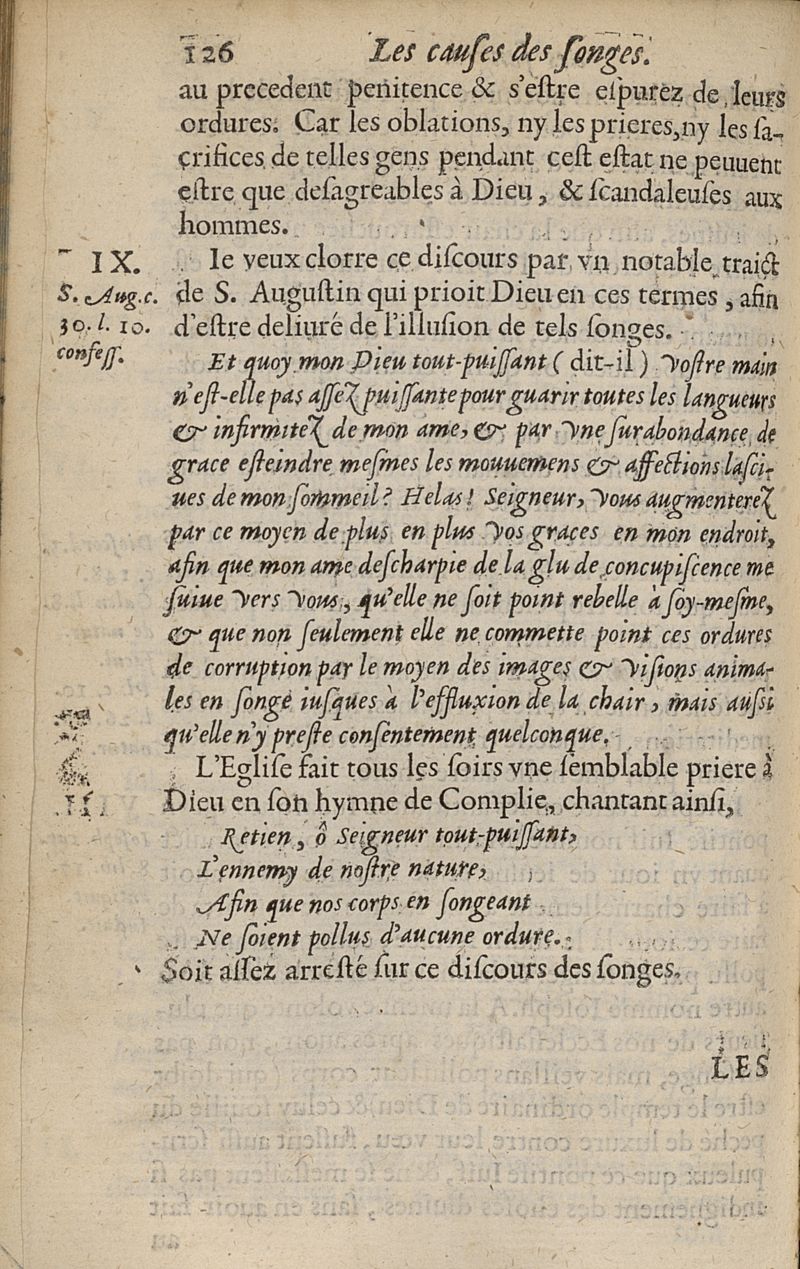 126 Les causes des songes.
au precedent penitence & s'estre espurez de leurs
ordures. Car les oblations, ny les prieres, ny les sa-
crifices de telles gens pendant cest estat ne peuuent
estre que desagreables à Dieu, & scandaleuses aux
hommes.
IX.
Ie veux clorre ce discours par vn notable traict
S. Aug. c.
de S. Augustin qui prioit Dieu en ces termes, afin
30. l. 10.
d'estre deliuré de l'illusion de tels songes.
confess.
Et quoy mon Dieu tout-puissant (dit-il) vostre main
n'est-elle pas assez puissante pour guarir toutes les langueurs
& infirmitez de mon ame, & par vne surabondance de
grace esteindre mesmes les mouuemens & affections lasci-
ues de mon sommeil? Helas! Seigneur, vous augmenterez
par ce moyen de plus en plus vos graces en mon endroit,
afin que mon ame descharpie de la glu de concupiscence me
suiue vers vous, qu'elle ne soit point rebelle à soy-mesme,
& que non seulement elle ne commette point ces ordures
de corruption par le moyen des images & visions anima-
les en songe iusques à l'effluxion de la chair, mais aussi
qu'elle n'y preste consentement quelconque.
L'Eglise fait tous les soirs vne semblable priere à
Dieu en son hymne de Complie, chantant ainsi,
Retien, ô Seigneur tout-puissant,
L'ennemy de nostre nature,
Afin que nos corps en songeant
Ne soient pollus d'aucune ordure.
Soit assez arresté sur ce discours des songes.
LES